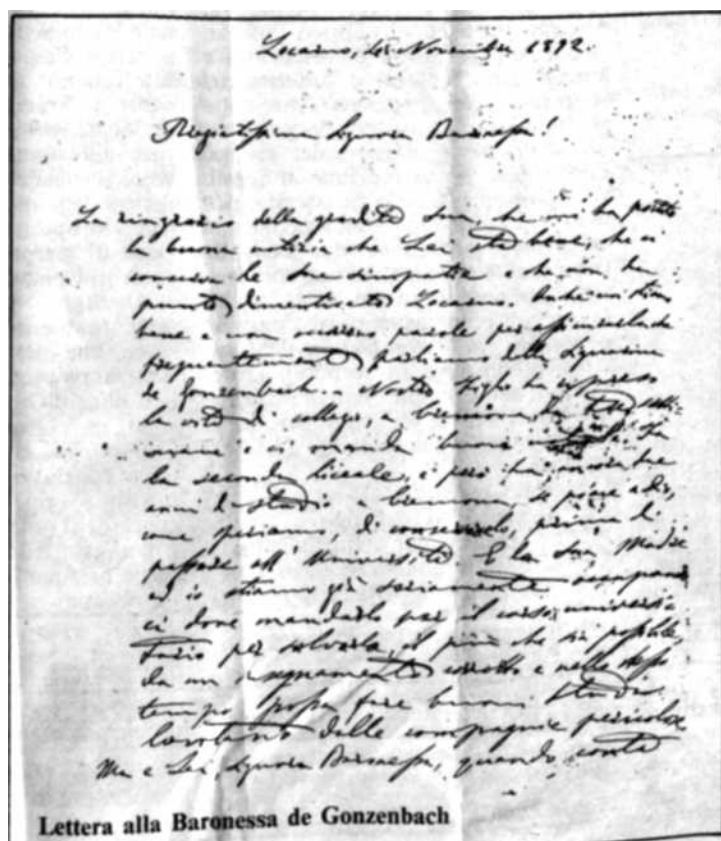 Locarno, dì Novembre 1892.
Pregiatissima Signora Baronessa!
La ringrazio della gradita Sua, che mi ha portato
la buona notizia che Lei sta bene, che ci
conserva le Sue simpatie e che non ha
punto dimenticato Locarno. Anche noi stiamo
bene e non parole per
frequentemente parliamo della Signora
de Gonzenbach. Nostro figlio ha ripreso
la vita di collegio, a
e ci manda buone
la seconda liceale, e però ha ancora tre
anni di studio a se piace a Dio,
come speriamo, di conservarlo, prima di
passare all' Università. E la Sua Madre
ed io stiamo già seriamente
ci dove mandarlo per il corso universi
tario per salvarlo, il più che sia possibile,
da un insegnamento corrotto e nello stesso
tempo possa fare buoni studi
lontano dalle compagnie pericolose
Ma e Lei, Signora Baronessa, quando conta
Lettera alla Baronessa de Gonzenbach